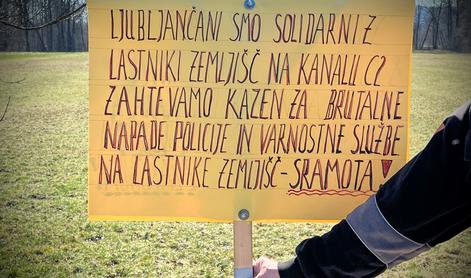 LJUBLJANČANI SMO SOLIDARNI Z
LASTNIKI ZEMLJIŠČ NA KANALU C2
ZAHTEVAMO KAZEN ZA BRUTALNE
NAPADE POLICIJE IN VARNOSTNE SLUŽBE
NA LASTNIKE ZEMLJIŠČ-SRAMOTA!